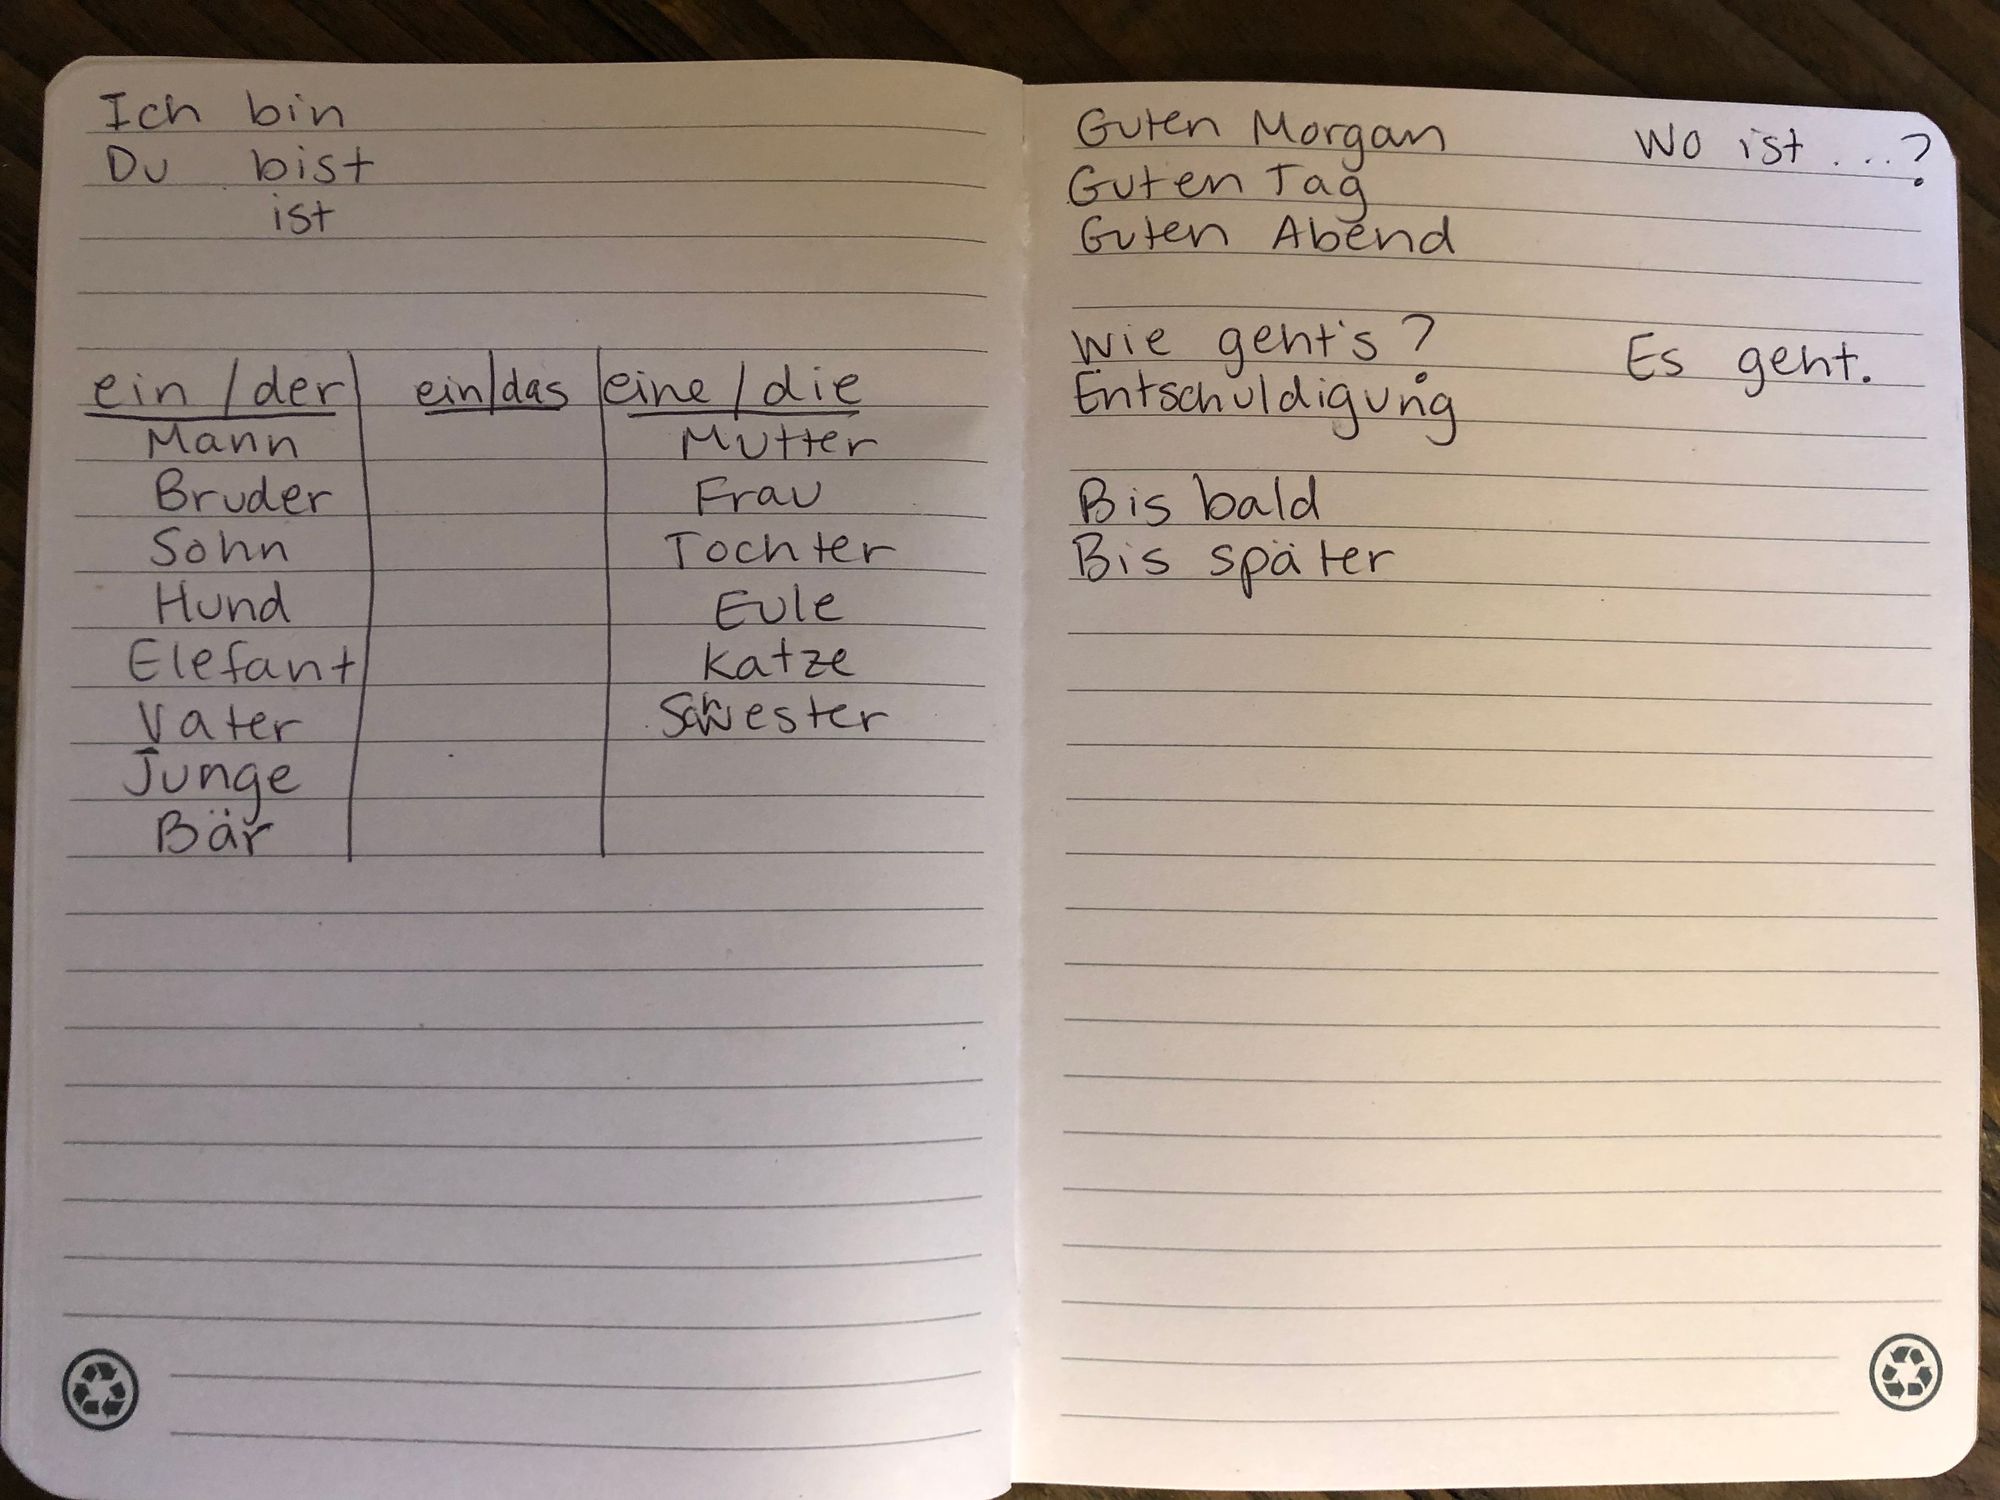 Ich bin
Du bist
ist
ein/der ein/das eine/die
Mann Mutter
Bruder Frau
Sohn Tochter
Hund Eule
Elefant Katze
Vater Schwester
Junge
Bär
Guten Morgan Wo ist ...?
Guten Tag
Guten Abend
Wie geht's? Es geht.
Entschuldigung
Bis bald
Bis später